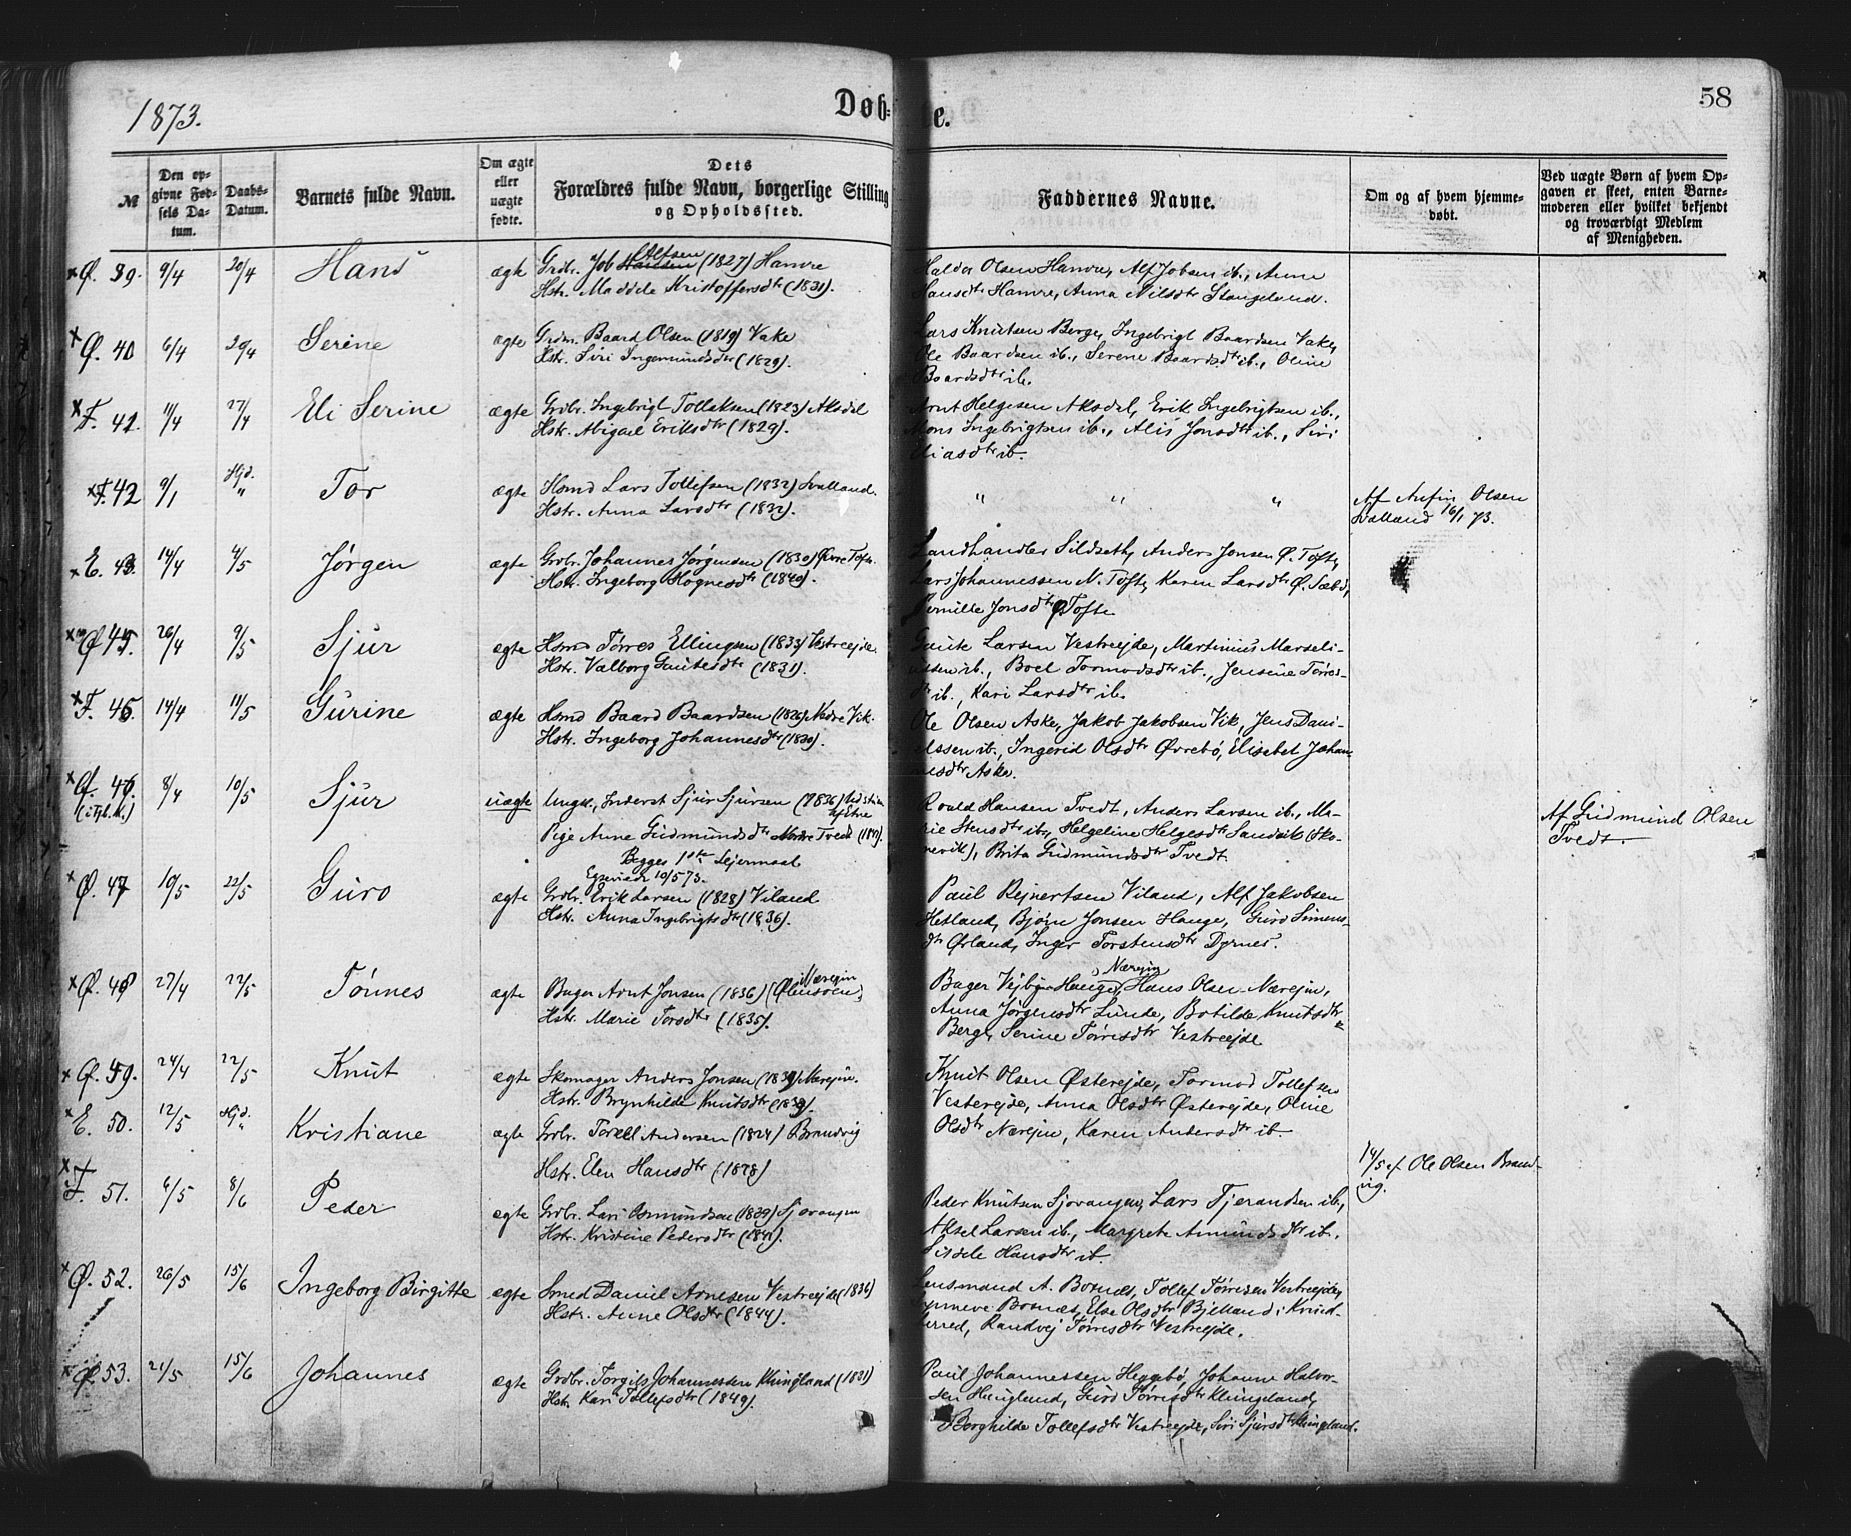 1873.
Døb-
e.
58
№
Den op-
givne Fød-
sels Da-
tum.
Daabs-
Datum.
Barnets fulde Navn.
Om ægte
eller
uægte
fødte.
Dets
Forældres fulde Navn, borgerlige Stilling
og Opholdssted.
Faddernes Navne.
Om og af hvem hjemme-
døbt.
Ved uægte Børn af hvem Op-
gaven er skeet, enten Barne-
moderen eller hvilket bekjendt
og troværdigt Medlem
af Menigheden.
x Ø. 39. 9/4 20/4 Hans ægte Grdbr. Job Hansen Alfsen (1827) Hamre
Hstr. Maddele Kristoffersdtr (1831).
Haldor Olsen Hamre, Alf Jobsen ib., Anne
Hansdtr Hamre, Anna Nilsdtr Stangeland.
x Ø. 40 6/4 20/4 Serine ægte Grdm. Baard Olsen (1819) Vake
Hstr. Siri Ingemundsdtr (1829).
Lars Knutsen Berge, Ingebrigt Baardsen Vake,
Ole Baardsen ib., Serene Baardsdtr ib., Oline
Baardsdtr ib.
x F. 41. 11/4 27/4 Eli Serine ægte Grdbr. Ingebrigt Tollaksen (1823) Aksdal
Hstr. Abigael Eriksdtr (1829).
Arnt Helgesen Aksdal, Erik Ingebrigtsen ib.,
Mons Ingebrigtsen ib., Alis Jonsdtr ib., Siri
Eliasdtr ib.
x F. 42 9/1 Hjd. " Tor ægte Hsmd Lars Tollefsen (1832) Svalland.
Hstr. Anna Larsdtr (1832).
" " "
Af Anfin Olsen
Svalland 16/1 73.
x E. 43. 14/4 4/5 Jørgen ægte Grdbr. Johannes Jørgensen (1830) Øvre Tofte
Hstr. Ingeborg Hognesdtr (1840).
Landhandler Sildseth, Anders Jonsen Ø. Tofte,
Lars Johannessen N. Tofte, Karen Larsdtr Ø. Sæbø,
Pernille Jonsdtr Ø Tofte
x Ø 45. 26/4 9/5 Sjur ægte Hsmd Tørres Ellingsen (1833) Vestreejde.
Hstr. Valborg Gautesdtr (1831).
Gaute Larsen Vestreejde, Martinius Marseli-
ussen ib., Boel Tormodsdtr ib., Jensine Tørres-
dtr ib., Kari Larsdtr ib.
x F. 46. 14/4 11/5 Gurine ægte Hsmd Baard Baardsen (1826) Nedre Vik.
Hstr. Ingeborg Johannesdtr (1830).
Ole Olsen Aske, Jakob Jakobsen Vik, Jens Dani-
elssen ib., Ingerid Olsdtr Øvrebø, Elisabet Johan-
nesdtr Aske.
x Ø. 46. 8/4 10/5 Sjur uægte Ungk., Inderst Sjur Sjursen (1836)
Pige Anne Gudmundsdtr Tvedt
Begges 1ste Lejermaal
Roald Hansen Tvedt, Anders Larsen ib., Ma-
rie Stensdtr ib., Helgeline Helgesdtr Sandvik (Sko-
nevik), Brita Gudmundsdtr Tvedt
Af Gudmund Olsen
Tvedt.
x Ø. 47 10/5 22/5 Guro ægte Grdbr. Erik Larsen (1828) Viland
Hstr. Anna Ingebrigtsdtr (1836).
Paul Rejnertsen Viland, Alf Jakobsen
Hetland, Bjørn Jonsen Hauge, Guro Simons-
dtr Ørland, Inger Torstensdtr Dyrnes.
x Ø. 48 27/4 22/5 Tönnes ægte Bager Arnt Jonsen (1836) (Ølensøen) Nærejm
Hstr. Marie Torsdtr (1835).
Bager Hauge, Nærejm Hans Olsen Nærejm,
Anna Jørgensdtr Lunde, Botilde Knutsdtr
Berge, Serine Tørresdtr Vestreejde
x Ø. 49. 24/4 22/5 Knut ægte Skomager Anders Jonsen Nærejm.
Hstr. Brynhilde Knutsdtr
Knut Olsen Østreejde, Tormod Tollefsen
Vestreejde, Anna Olsdtr Østreejde, Oline
Olsdtr Nærejm, Karen Andersdtr ib.
x E. 50. 12/5 Hjd. " Kristiane ægte Grdbr. Torkel Andersen (1824) Brandvig
Hstr. Elen Hansdtr (1828)
14/5 af Ole Olsen Brand-
vig.
x F. 51. 6/5 8/6 Peder ægte Grdbr. Lars Osmundsen (1829) Sjovangen
Hstr. Kristine Pedersdtr (1841).
Peder Knutsen Sjovangen, Lars Tjerandsen ib.,
Aksel Larsen ib., Margrete Amundsdtr ib.
Sissele Hansdtr ib
x Ø. 52. 26/5 15/6 Ingeborg Birgitte ægte Smed Daniel Arnesen Vestreejde (1836)
Hstr. Anne Olsdtr (1844).
Lensmand A. Børnes, Tollef Tørresen Vestreejde,
Synneve Børnes, Else Olsdtr Bjelland i Kvind-
herred, Randvej Tørresdtr Vestreejde.
x Ø. 53. 21/5 15/6 Johannes ægte Grdbr. Torgils Johannessen Klungland (1821)
Hstr. Kari Tollefsdtr (1849).
Paul Johannessen Heggebø, Johanne Halvor-
sen Klungland, Guro Tørresdtr Klungeland,
Borghilde Tollefsdtr Vestreejde, Siri Sjursdtr Klungland.